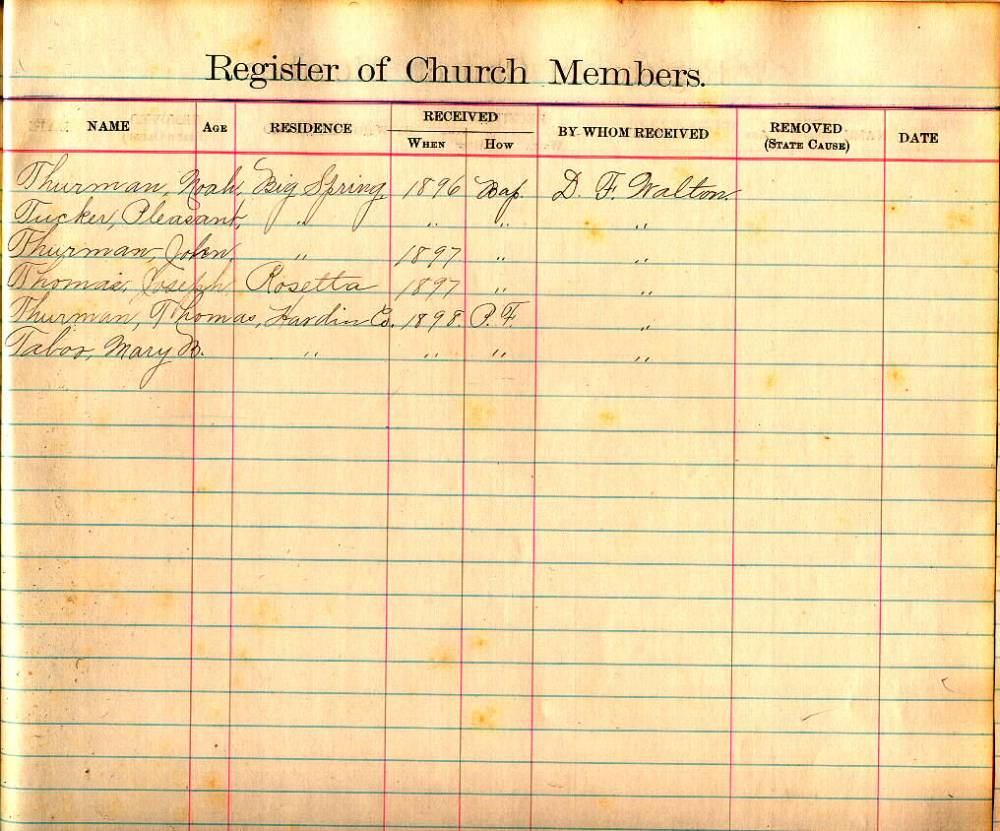 Register of Church Members.
NAME AGE RESIDENCE RECEIVED BY WHOM RECEIVED REMOVED DATE
WHEN HOW (STATE CAUSE)
Thurman, Noah, Big Spring, 1896 Bap. D. F. Walton.
Tucker, Pleasant, " " " "
Thurman, John, " 1897 " "
Thomas, Joseph, Rosetta 1897 " "
Thurman, Thomas, Hardin Co. 1898. P. F. "
Tabor, Mary B. " " " "